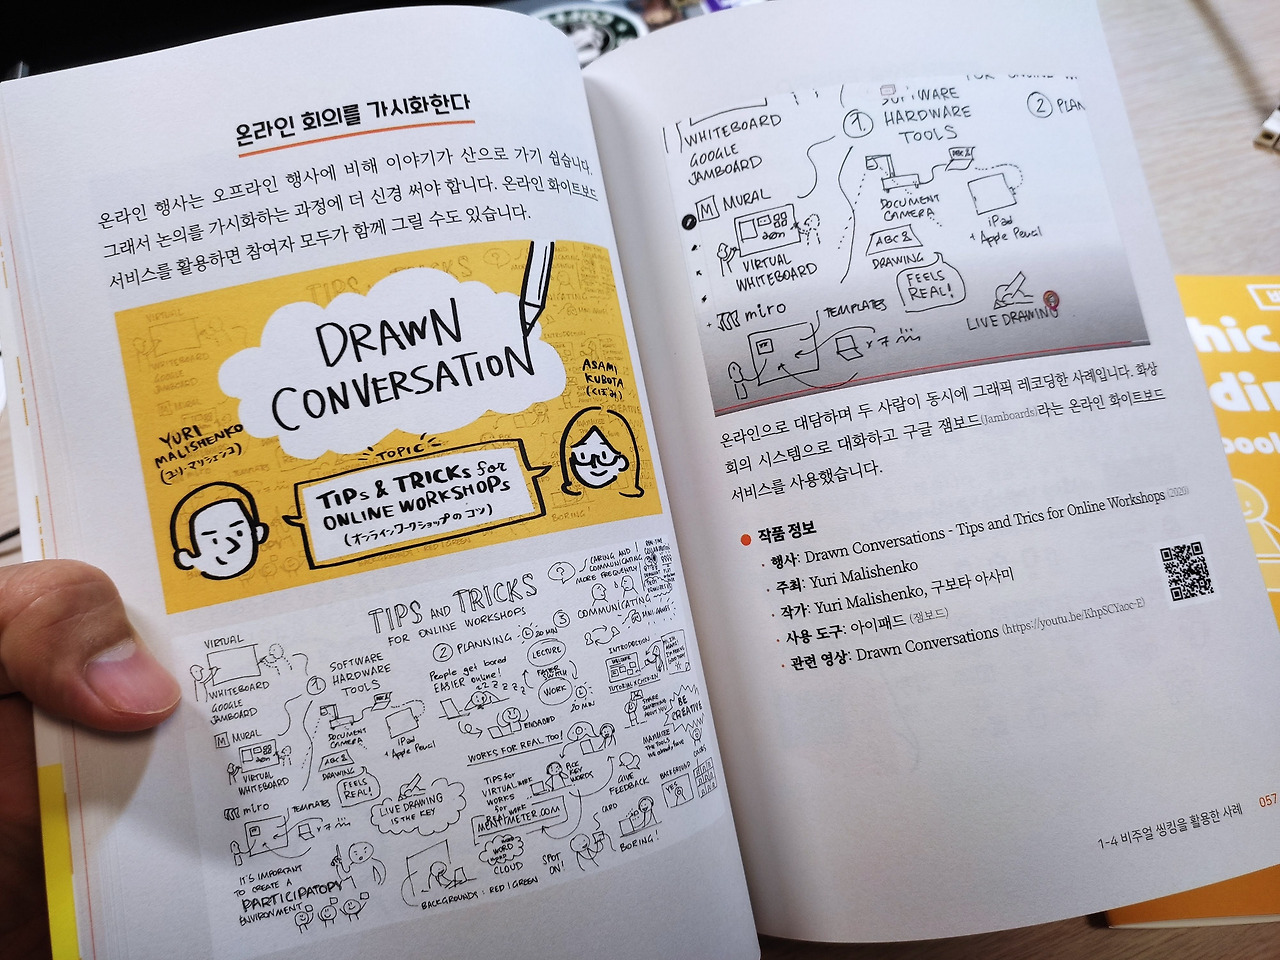 온라인 회의를 가시화한다
온라인 행사는 오프라인 행사에 비해 이야기가 산으로 가기 쉽습니다.
그래서 논의를 가시화하는 과정에 더 신경 써야 합니다. 온라인 화이트보드
서비스를 활용하면 참여자 모두가 함께 그릴 수도 있습니다.
DRAWN
CONVERSATION
YURI
MALISHENKO
(ユリ・マリシェンコ)
ASAMI
KUBOTA
(くぼみ)
TOPIC
TIPS & TRICKS for
ONLINE WORKSHOPS
(オンラインワークショップのコツ)
TIPS AND TRICKS
FOR ONLINE WORKSHOPS
VIRTUAL
WHITEBOARD
GOOGLE
JAMBOARD
M MURAL
VIRTUAL
WHITEBOARD
miro
TEMPLATES
IT'S IMPORTANT
TO CREATE A
PARTICIPATORY
ENVIRONMENT
1. SOFTWARE
HARDWARE
TOOLS
DOCUMENT
CAMERA
iPad
+ Apple Pencil
ABC
DRAWING
FEELS
REAL!
LIVE DRAWING
IS THE KEY
2 PLANNING
20 MIN
People get bored
EASIER online!
zzzzz
LECTURE
WORK
20 MIN
WORKS FOR REAL TOO!
TIPS for
VIRTUAL WORK
WORKS
for
REAL WORK
MENTIMETER.COM
PICK
KEY
WORDS
WORD
CLOUD
SPOT
ON!
BACKGROUNDS: RED | GREEN
3
COMMUNICATING
CARING AND
COMMUNICATING
MORE FREQUENTLY
INTRODUCTION
WELCOME
SHARE
SOMETHING
ABOUT YOU
BE
CREATIVE
MAXIMIZE
THE TOOLS
we already have
GIVE
FEEDBACK
BACKGROUND
YES
CARD
BORING!
WHITEBOARD
GOOGLE
JAMBOARD
M MURAL
VIRTUAL
WHITEBOARD
miro
TEMPLATES
1. SOFTWARE
HARDWARE
TOOLS
2 PLAN
DOCUMENT
CAMERA
ABC
iPad
+ Apple Pencil
ABC
DRAWING
FEELS
REAL!
LIVE DRAWING
온라인으로 대담하며 두 사람이 동시에 그래픽 레코딩한 사례입니다. 화상
회의 시스템으로 대화하고 구글 잼보드(Jamboards)라는 온라인 화이트보드
서비스를 사용했습니다.
● 작품 정보
· 행사: Drawn Conversations - Tips and Trics for Online Workshops (2020)
· 주최: Yuri Malishenko
· 작가: Yuri Malishenko, 구보타 아사미
· 사용 도구: 아이패드 (잼보드)
· 관련 영상: Drawn Conversations (https://youtu.be/KhpSCYaoc-E)
1-4 비주얼 씽킹을 활용한 사례 057
hic
din
book